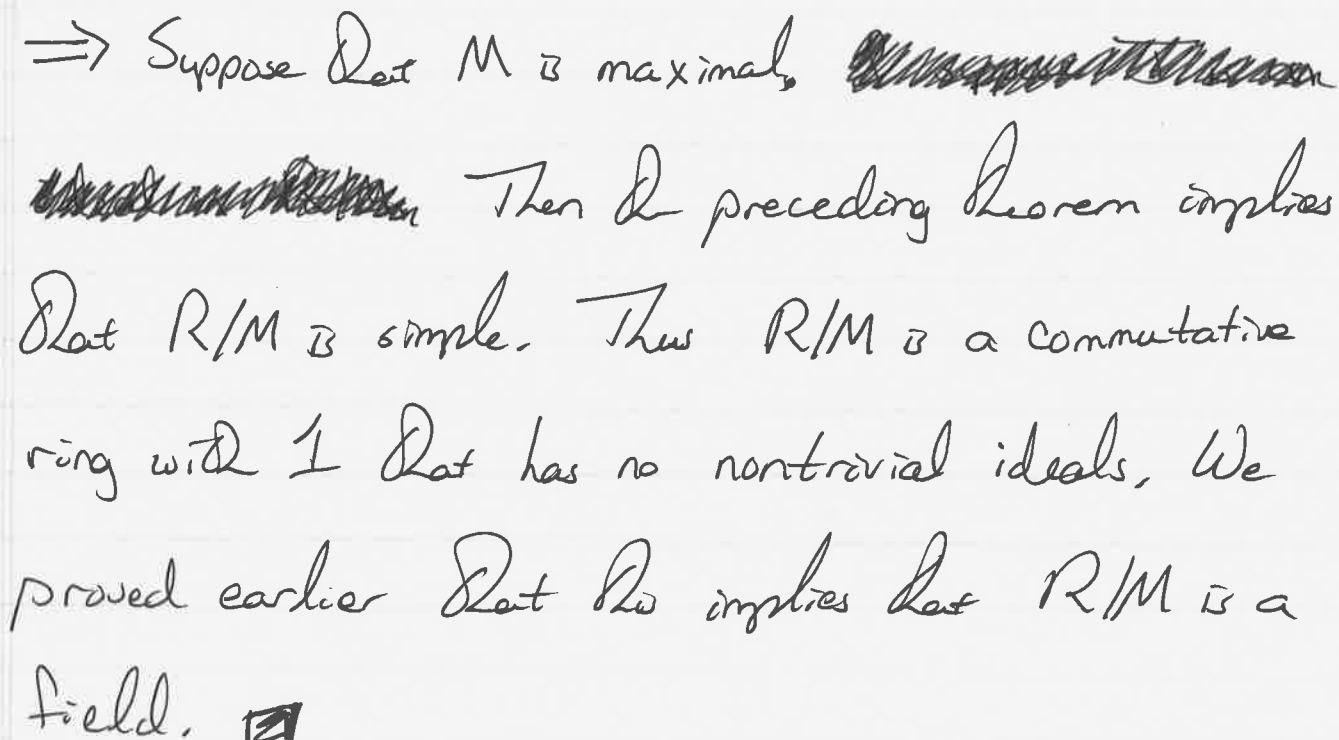 ⟹ Suppose that M is maximal.
Then the preceding theorem implies
that R/M is simple. Thus R/M is a commutative
ring with 1 that has no nontrivial ideals. We
proved earlier that this implies that R/M is a
field.